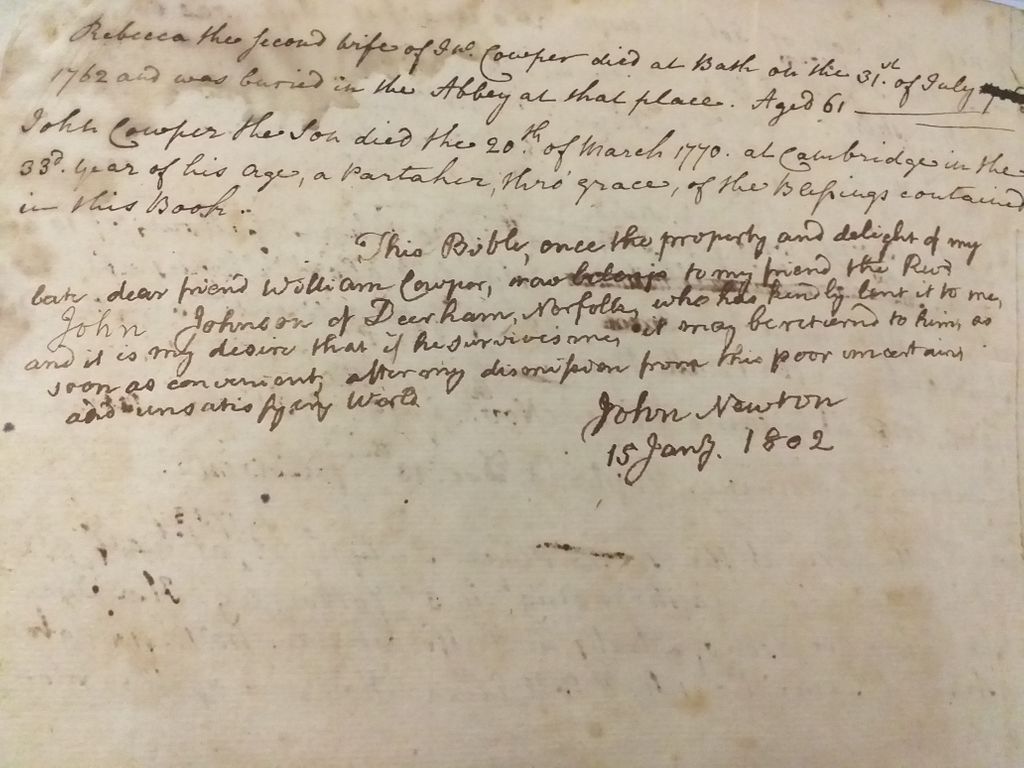 Rebecca the second wife of Jno. Cowper died at Bath on the 31st. of July
1762 and was buried in the Abbey at that place. Aged 61
John Cowper the Son died the 20th. of March 1770. at Cambridge in the
33d. year of his age, a Partaker, thro' grace, of the Blessings contained
in this Book.
This Bible, once the property and delight of my
late dear friend William Cowper, now belongs to my friend the Revd
John Johnson of Deerham, Norfolk, who has kindly lent it to me,
and it is my desire that if he survives me, it may be returnd to him, as
soon as convenient, after my dismission from this poor uncertain,
and unsatisfying World
John Newton
15 Jany. 1802